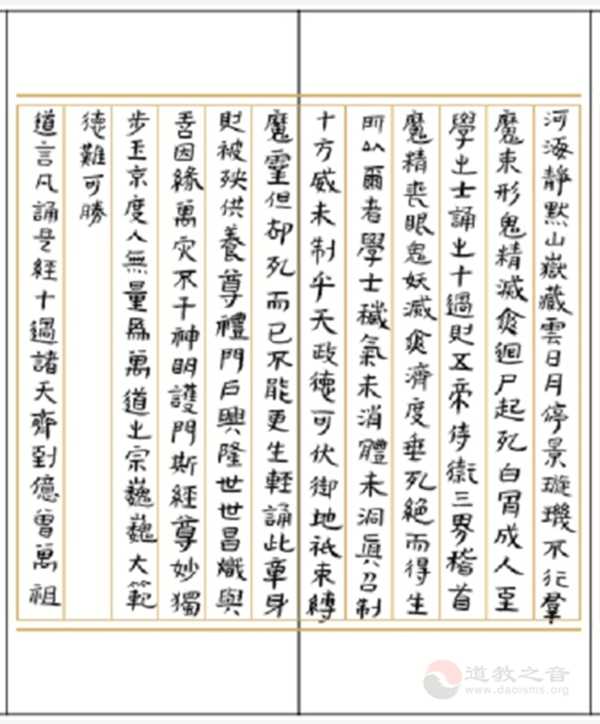 河海靜默山嶽藏雲日月停景璇璣不行羣
魔束形鬼精滅爽迴尸起死白骨成人至
學之士誦之十過則五帝侍衛三界稽首
魔精喪眼鬼妖滅爽濟度垂死絕而得生
所以爾者學士穢氣未消體未洞真召制
十方威未制乎天政德可伏御地祇束縛
魔靈但卻死而已不能更生輕誦此章身
則被殃供養尊禮門戶興隆世世昌熾與
善因緣萬灾不干神明護門斯經尊妙獨
步玉京度人無量為萬道之宗巍巍大範
德難可勝
道言凡誦是經十過諸天齊到億曾萬祖
道教之音
www.daoisms.org